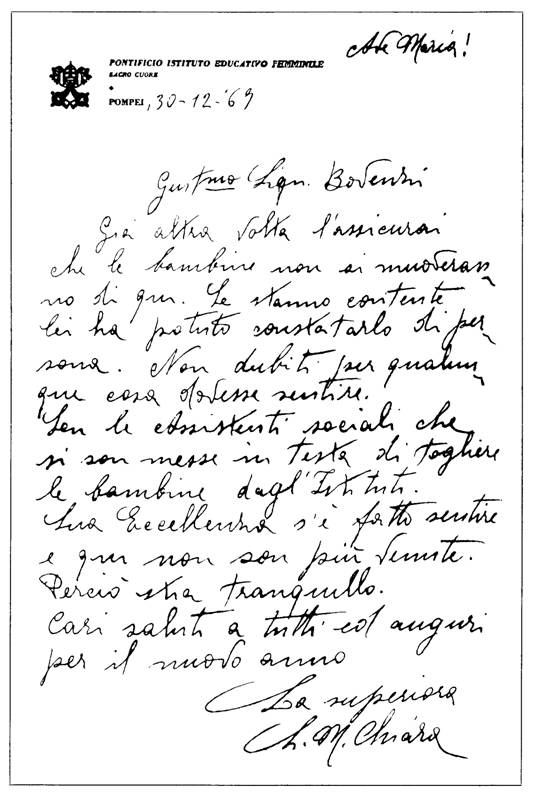 Ave Maria!
PONTIFICIO ISTITUTO EDUCATIVO FEMMINILE
SACRO CUORE
POMPEI, 30-12-'69
Gent.mo Sign. Bodenzi
Già altra volta l'assicurai
che le bambine non si muoveran-
no di qui. Se stanno contente
lei ha potuto constatarlo di per-
sona. Non dubiti per qualun-
que cosa dovesse sentire.
Son le Assistenti sociali che
si son messe in testa di togliere
le bambine dagl'Istituti.
Sua Eccellenza s'è fatto sentire
e qui non son più venute.
Perciò stia tranquillo.
Cari saluti a tutti ed auguri
per il nuovo anno
La superiora
M. Chiara